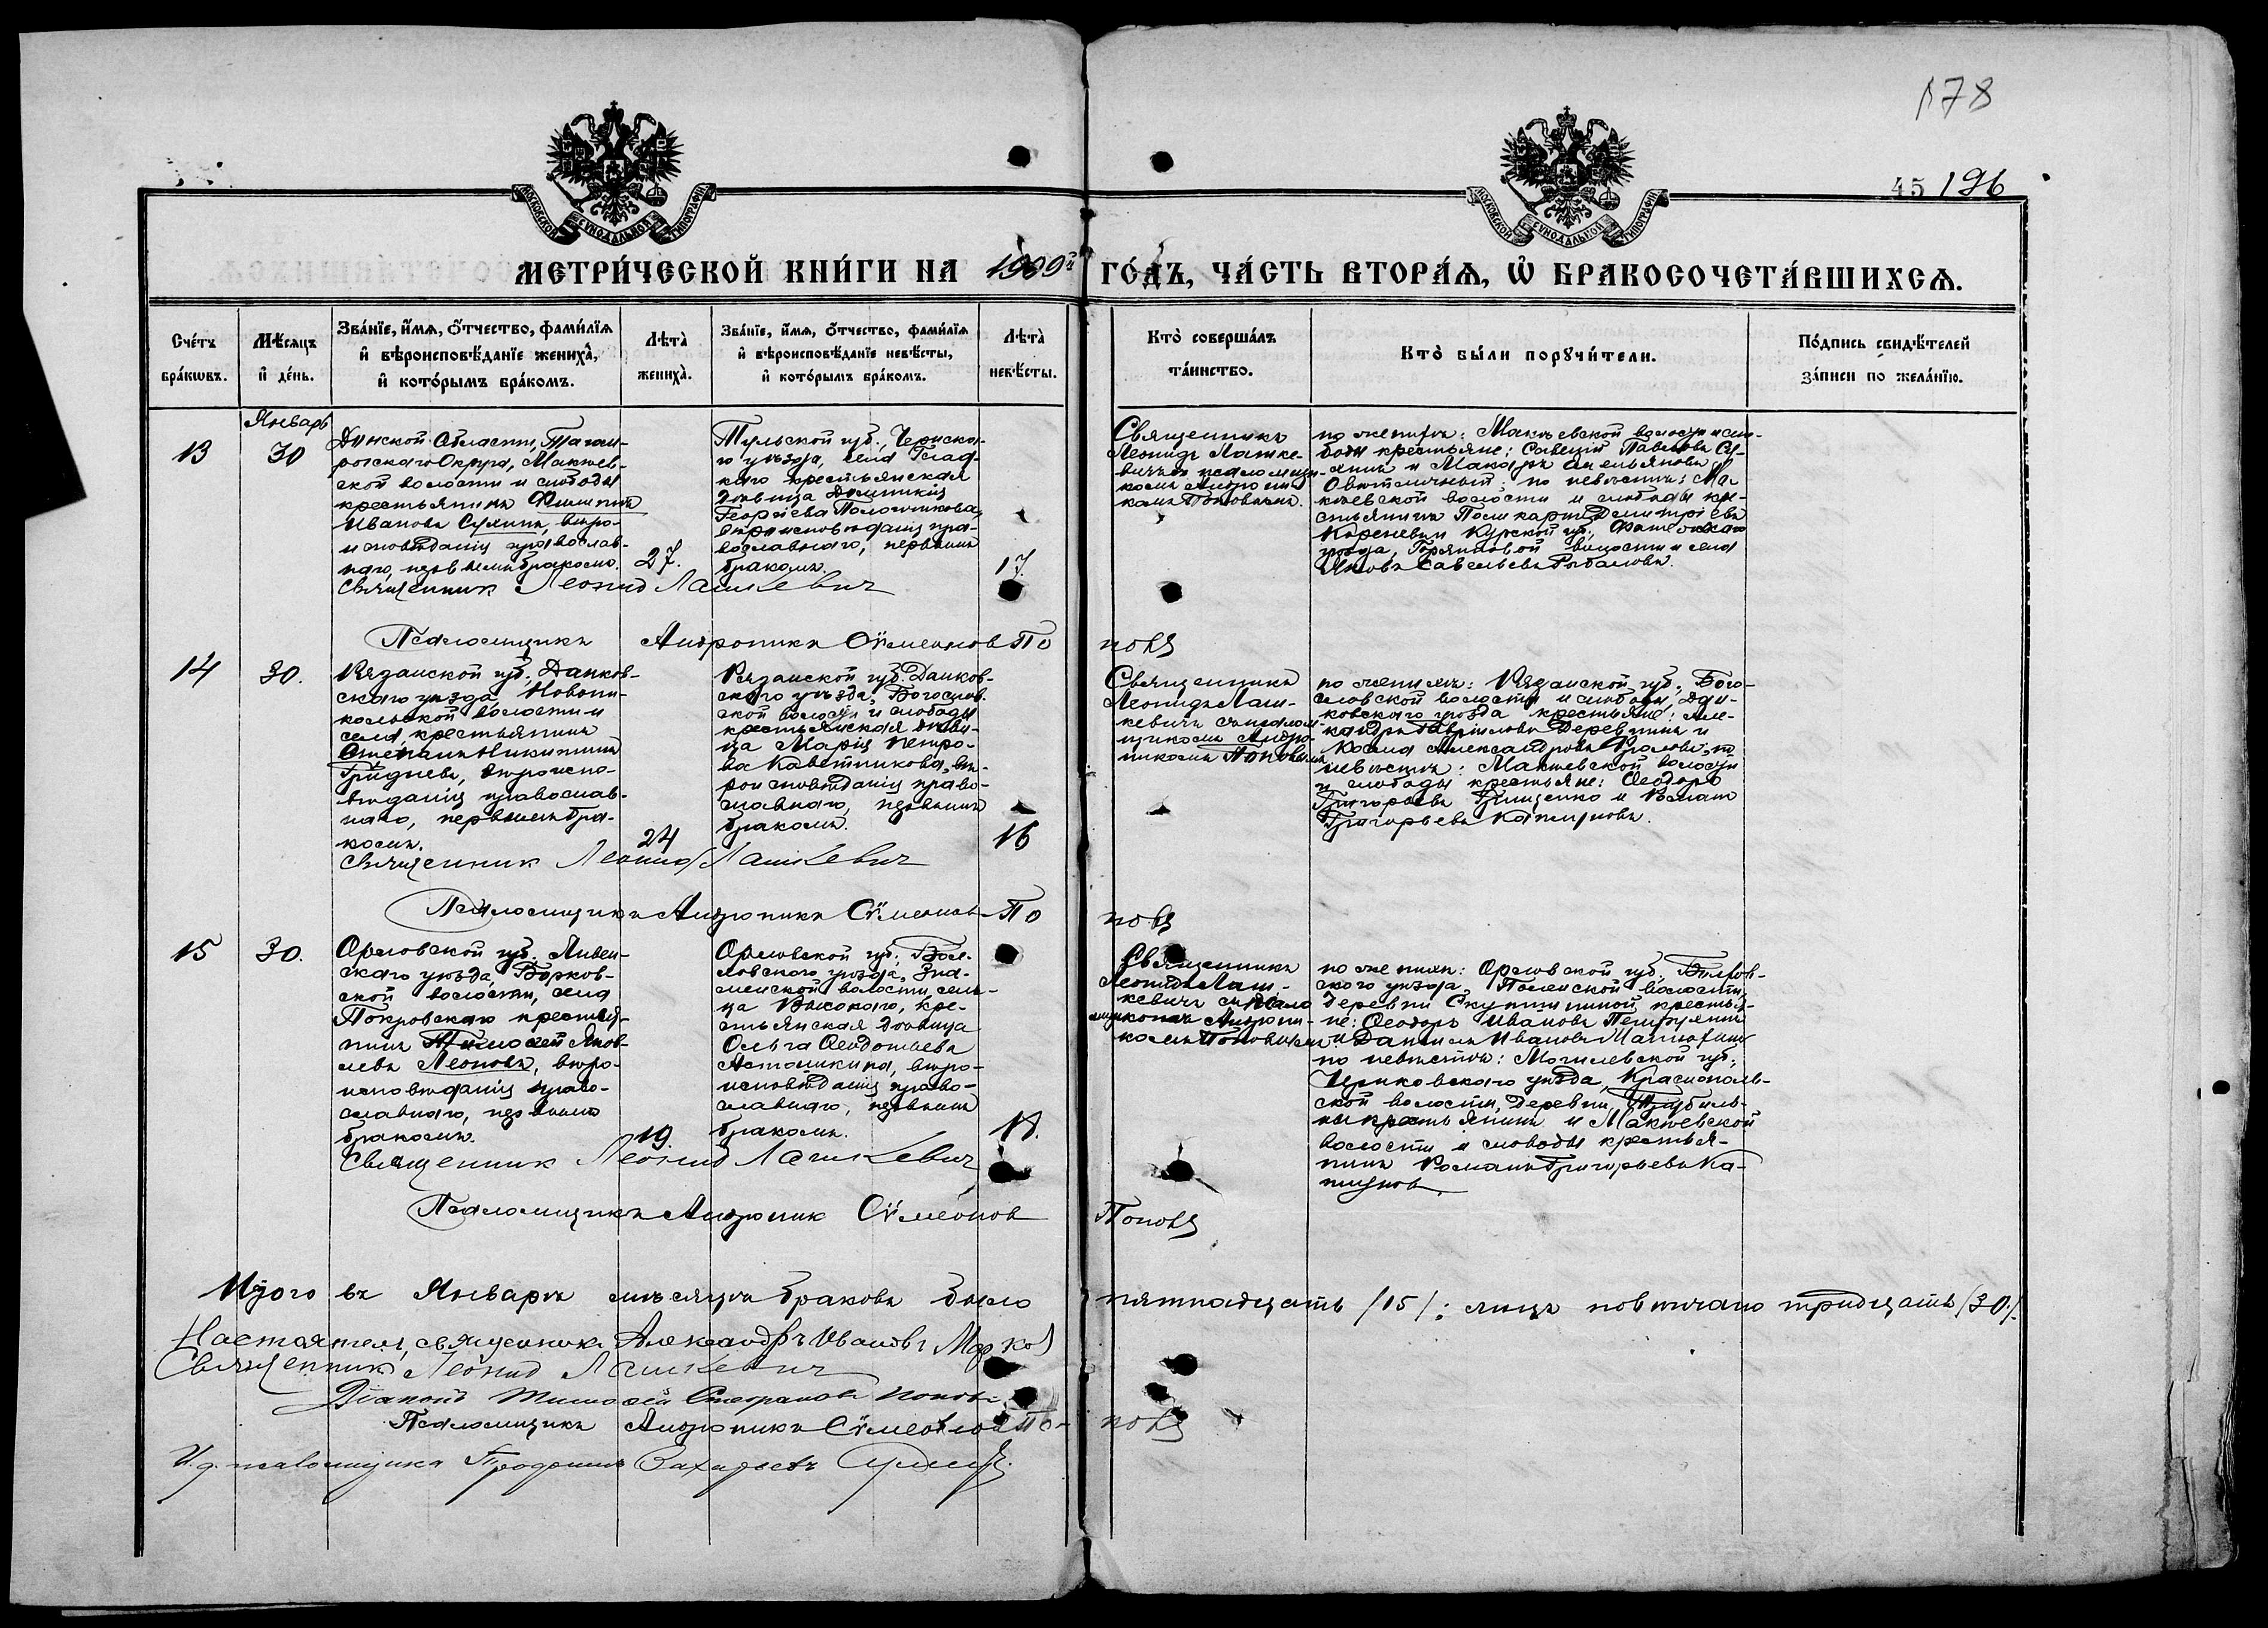 178
45 196
МОСКОВСКОЙ СѴНОДАЛЬНОЙ ТИПОГРАФІИ
МОСКОВСКОЙ СѴНОДАЛЬНОЙ ТИПОГРАФІИ
МЕТРИ́ЧЕСКОЙ КНИ́ГИ НА 1909й ГО́ДЪ, ЧА́СТЬ ВТОРА́Ѧ, Ѽ БРАКОСОЧЕТА́ВШИХСѦ.
Сче́тъ
бра́кѡвъ.
Мѣ́сяцъ
и҆ де́нь.
Зва́нїе, и҆́мѧ, ѻ҆́тчество, фами́лїѧ
и҆ вѣроисповѣ́данїе жениха̀,
и҆ кото́рымъ бра́комъ.
Лѣта̀
жениха̀.
Зва́нїе, и҆́мѧ, ѻ҆́тчество, фами́лїѧ
и҆ вѣроисповѣ́данїе невѣ́сты,
и҆ кото́рымъ бра́комъ.
Лѣта̀
невѣ́сты.
Кто̀ соверша́лъ
та́инство.
Кто̀ бы́ли порꙋчи́тели.
По́дпись свидѣ́телей
за́писи по жела́нїю.
Январь
13
30
Донской Области, Таган-
рогскаго Округа, Макѣев-
ской волости и слободы
крестьянинъ Филиппъ
Ивановъ Сухинъ, вѣро-
исповѣданія православ-
наго, первымъ бракомъ.
27.
Тульской губ., Чернска-
го уѣзда, села Глад-
каго крестьянская
дѣвица Домникія
Георгіева Положникова,
вѣроисповѣданія пра-
вославнаго, первымъ
бракомъ.
17.
Священникъ
Леонидъ Лашке-
вичъ съ псаломщи-
комъ Андрони-
комъ Поповымъ.
по женихѣ: Макѣевской волости и сло-
боды крестьяне: Павловъ Су-
хинъ и Макаръ Емельяновъ
по невѣстѣ: Ма-
кѣевской волости и слободы кре-
стьянинъ Поликарпъ Димитріевъ
Кореневъ и Курской губ., Фатежскаго
уѣзда, волости и села
Яковъ Савельевъ Рыбаловъ.
Священник Леонид Лашкевич
Псаломщикъ Андроникъ Сѵмеоновъ По
повъ
14
30.
Рязанской губ., Данков-
скаго уѣзда, Новони-
кольской волости и
села, крестьянинъ
Стефанъ Никитинъ
Гридневъ, вѣроиспо-
вѣданія православ-
наго, первымъ бра-
комъ.
24
Рязанской губ. Данков-
скаго уѣзда, Богослов-
ской волости и слободы
крестьянская дѣви-
ца Марія Петро-
ва Кавѣтникова, вѣ-
роисповѣданія право-
славнаго, первымъ
бракомъ.
16
Священникъ
Леонидъ Лаш-
кевичъ съ псалом-
щикомъ Андро-
никомъ Поповымъ
по женихѣ: Рязанской губ., Бого-
словской волости и слободы, Дан-
ковскаго уѣзда крестьяне: Але-
ксандръ Гавриловъ Деревнинъ и
Косма Александровъ Фроловъ, по
невѣстѣ: Макѣевской волости
и слободы крестьяне: Ѳеодоръ
Григорьевъ Грищенко и Романъ
Григорьевъ Капшуковъ.
Священник Леонид Лашкевич
Псаломщикъ Андроникъ Сѵмеоновъ По
повъ
15
30.
Орловской губ. Ливен-
скаго уѣзда, Борков-
ской волости, села
Покровскаго крестья-
нинъ Тимоѳей Яков-
левъ Леоновъ, вѣро-
исповѣданія право-
славнаго, первымъ
бракомъ.
19.
Орловской губ. Бол-
ховскаго уѣзда, Зна-
менской волости, сель-
ца Высокаго, кре-
стьянская дѣвица
Ольга Ѳеодотьева
Астошкина, вѣро-
исповѣданія право-
славнаго, первымъ
бракомъ.
18.
Священникъ
Леонидъ Лаш-
кевичъ съ псало
мщикомъ Андрони-
комъ Поповымъ
по женихѣ: Орловской губ., Болхов-
скаго уѣзда, волости,
деревни крестья-
не: Ѳеодоръ Ивановъ
и Даніилъ Ивановъ
по невѣстѣ: Могилевской губ.,
Чериковскаго уѣзда, Краснополь-
ской волости, деревни
крестьянинъ и Макѣевской
волости и слободы крестья-
нинъ Романъ Григорьевъ Ка-
пшуковъ.
Священник Леонид Лашкевич
Псаломщикъ Андроник Сѵмеонов
Поповъ
Итого въ Январѣ мѣсяцѣ браковъ было пятнадцать /15/; лицъ повѣнчано тридцать /30/.
Настоятель, священникъ Александръ Ивановъ
Священник Леонид Лашкевич
Діаконъ Тимоѳей Стефановъ Поповъ
Псаломщикъ Андроникъ Сѵмеоновъ По-
повъ
И. д. псаломщика Захарьевъ